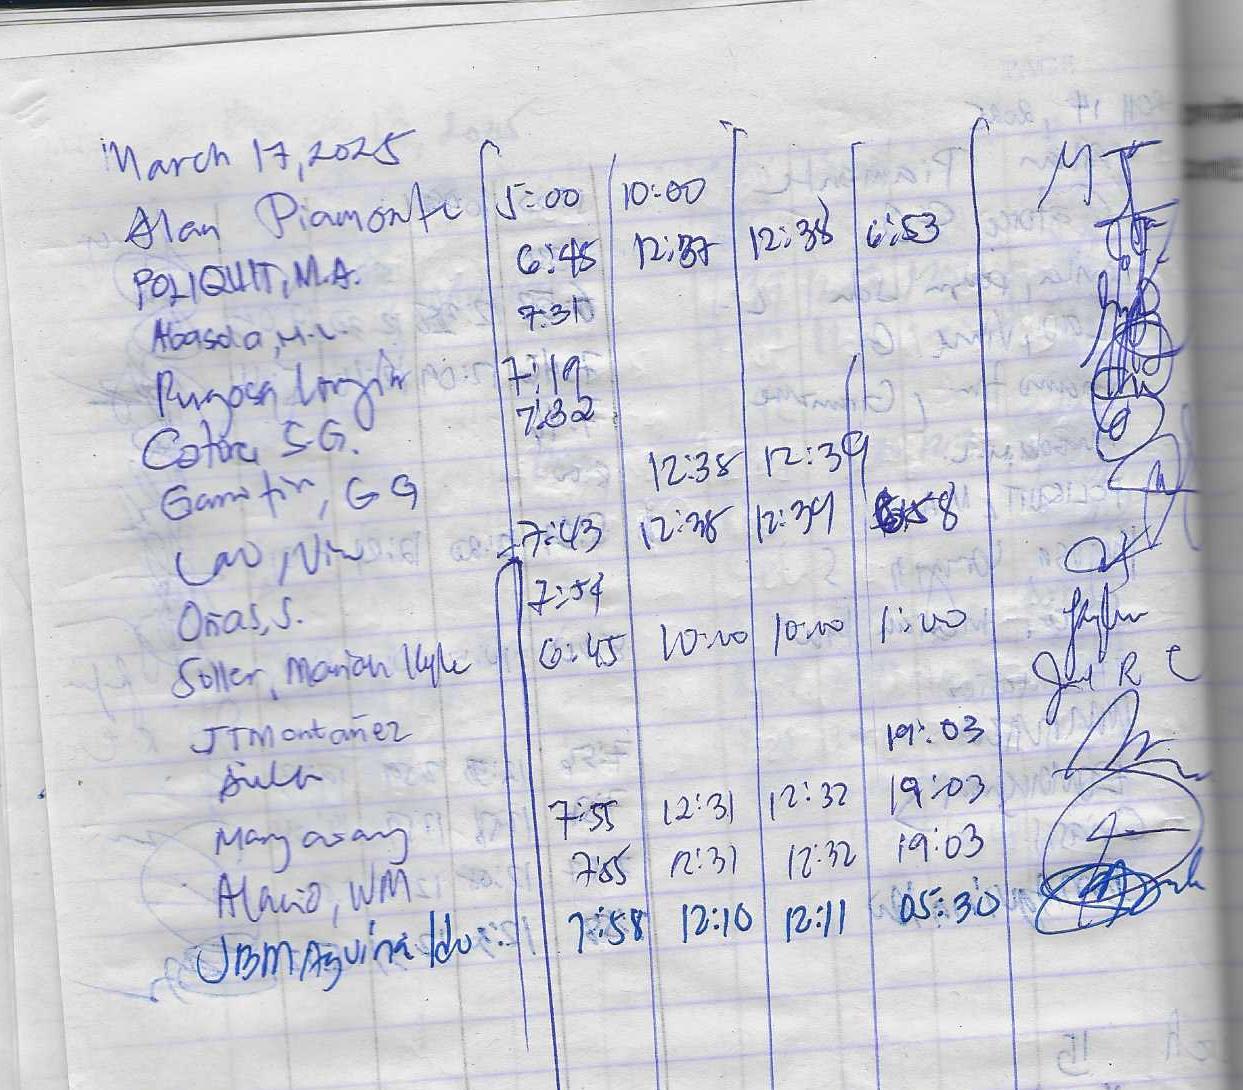 March 17, 2025
Alan Piamonte 5:00 10:00
POLIQUIT, M.A. 6:45 12:37 12:38 6:53
Abasola, M.L. 7:31
Rugosa 7:19
Cotoc S.G. 7:32
Gamotin, GG 12:38 12:39
Lao, Vin 7:43 12:38 12:39 6:58
Oñas, S. 7:54
Soller, Mariah Kyle 6:45 10:00 10:00 1:00
JTMontañez
19:03
Mangasang 7:55 12:31 12:32 19:03
Alacio, WM 7:55 12:31 12:32 19:03
JBMAguinaldo 7:58 12:10 12:11 05:30